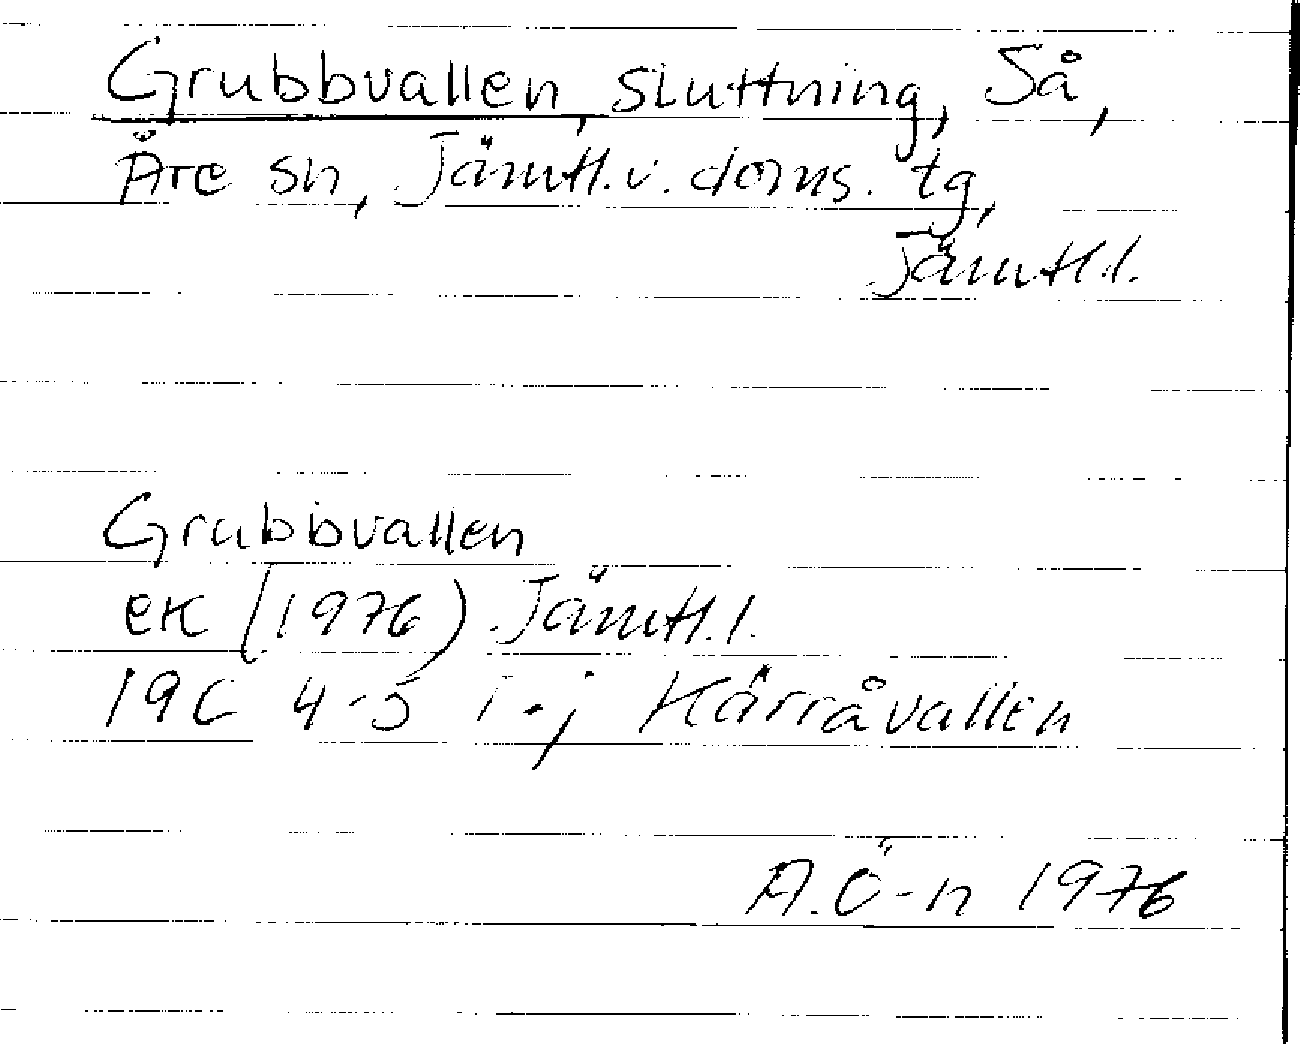 Grubbvallen, sluttning, Så,
Åre sn, Jämtl.v. doms. tg,
Jämtl.l.
Grubbvallen
ek (1976) Jämtl.l.
19C 4-5 i-j Kårråvallen
A.Ö-n 1976